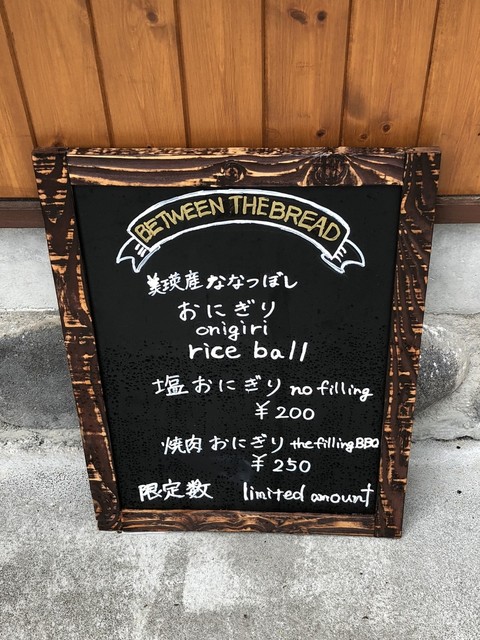 BETWEEN THE BREAD
美瑛産ななつぼし
おにぎり
onigiri
rice ball
塩おにぎり no filling
¥200
焼肉おにぎり the filling BBQ
¥250
限定数 limited amount